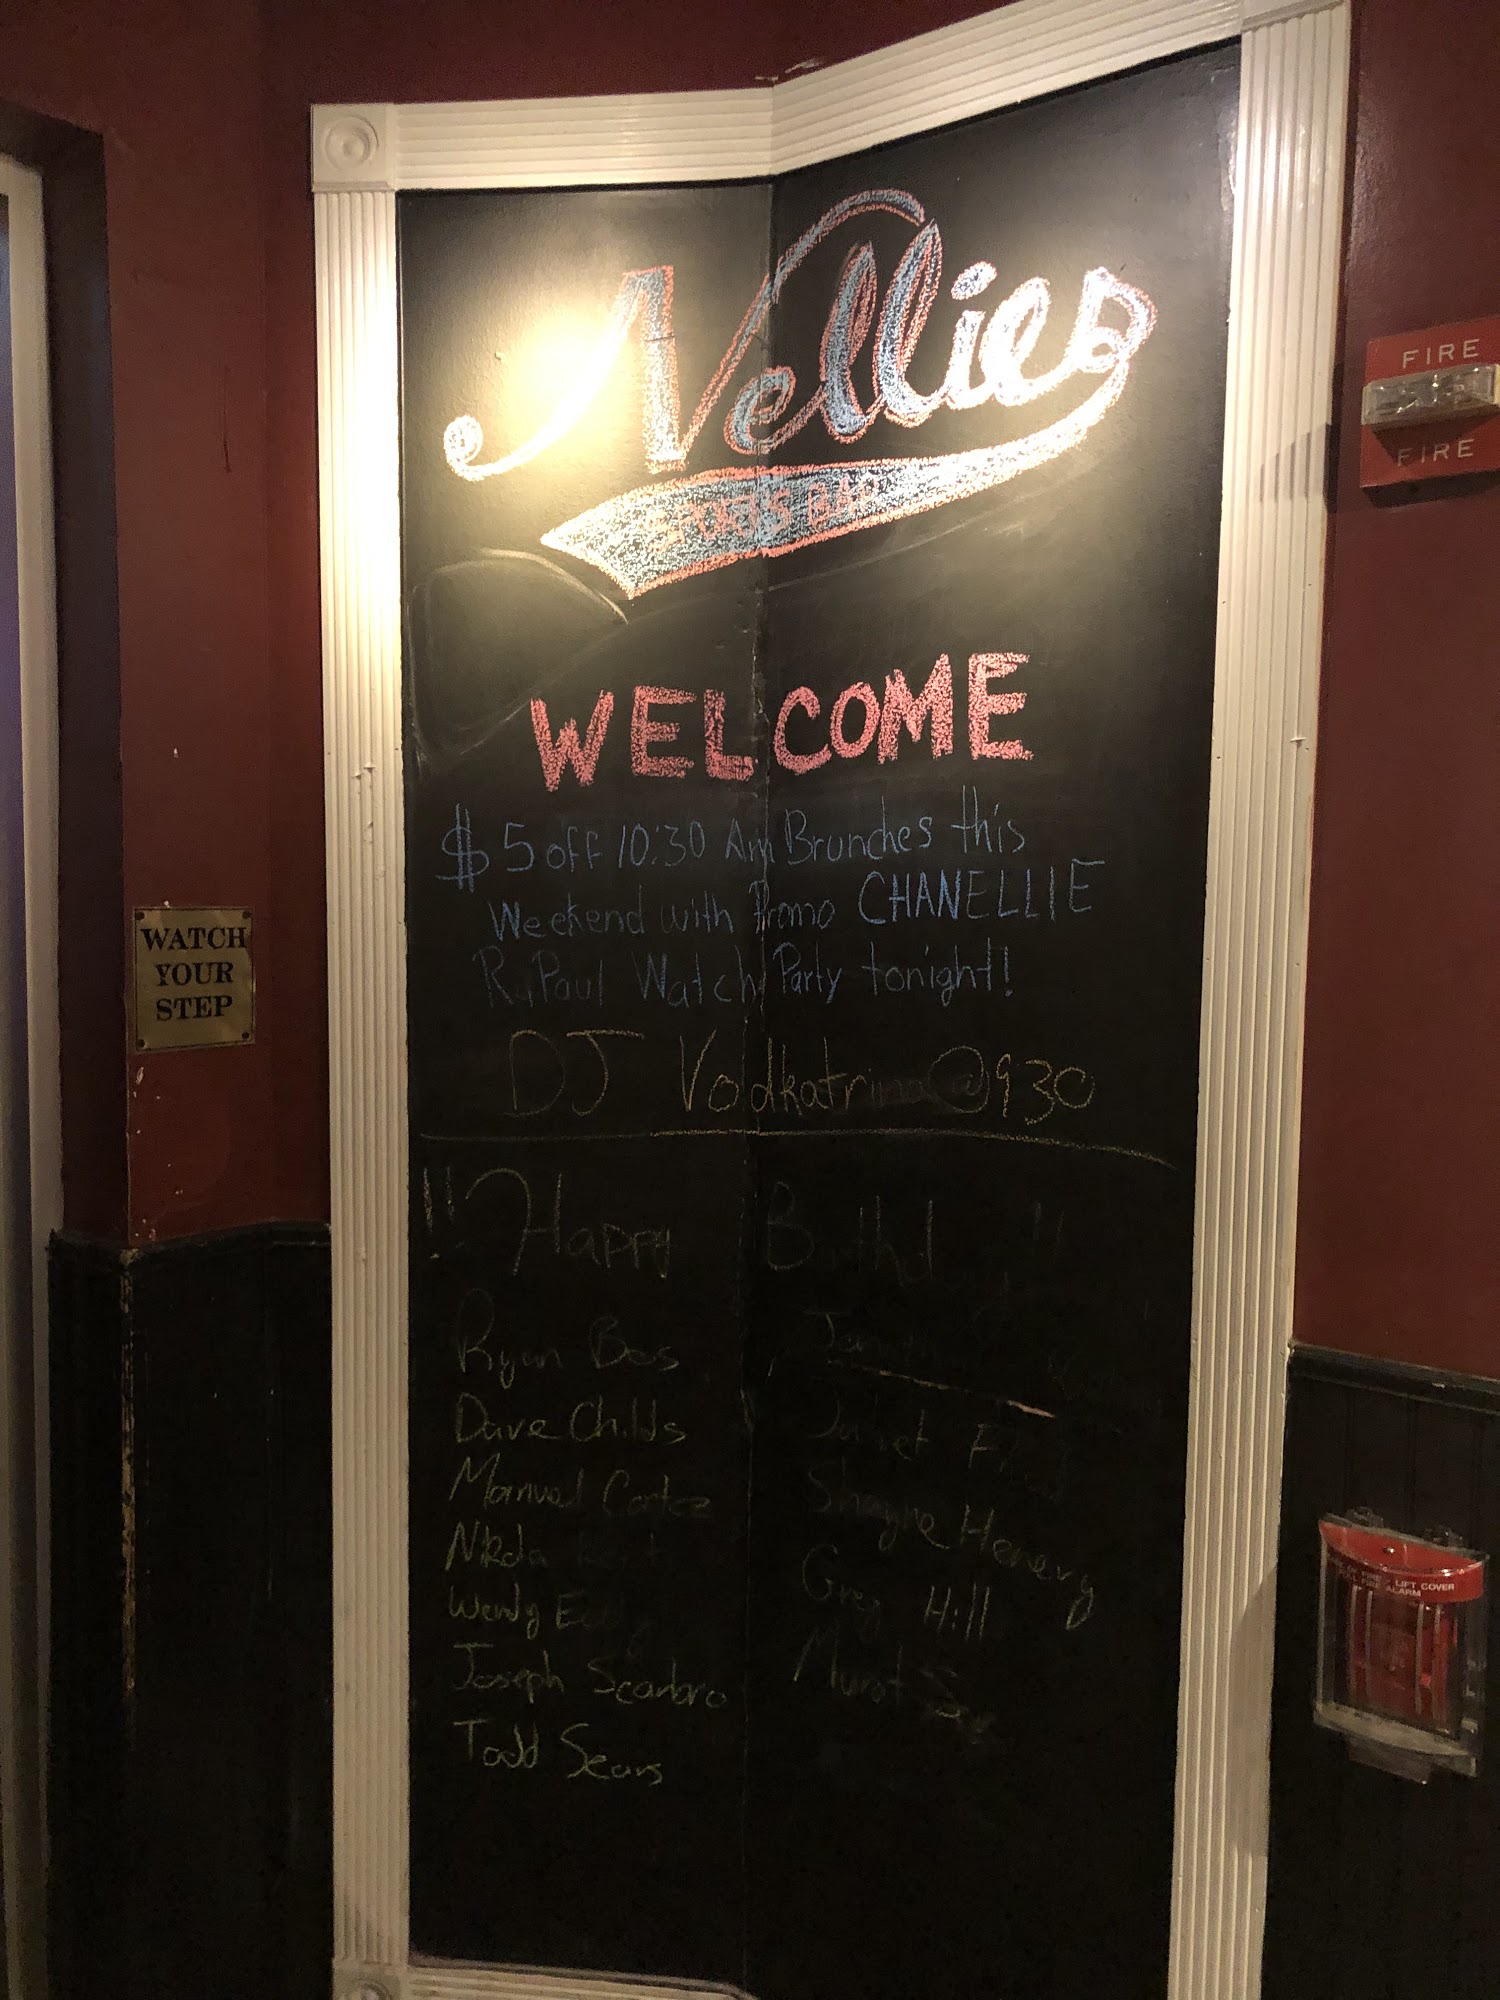 Nellies
SPORTS BAR
WELCOME
$5 off 10:30 Am Brunches this
Weekend with Promo CHANELLIE
RuPaul Watch Party tonight!
DJ Vodkatrina@930
!! Happy Birthday !!
Ryan Bos
Dave Childs
Manuel Cortez
Nikola
Wendy
Joseph Scarbro
Todd Sears
Juliet
Shayne Henery
Greg Hill
Murat
WATCH
YOUR
STEP
FIRE
FIRE
LIFT COVER
PULL FIRE ALARM